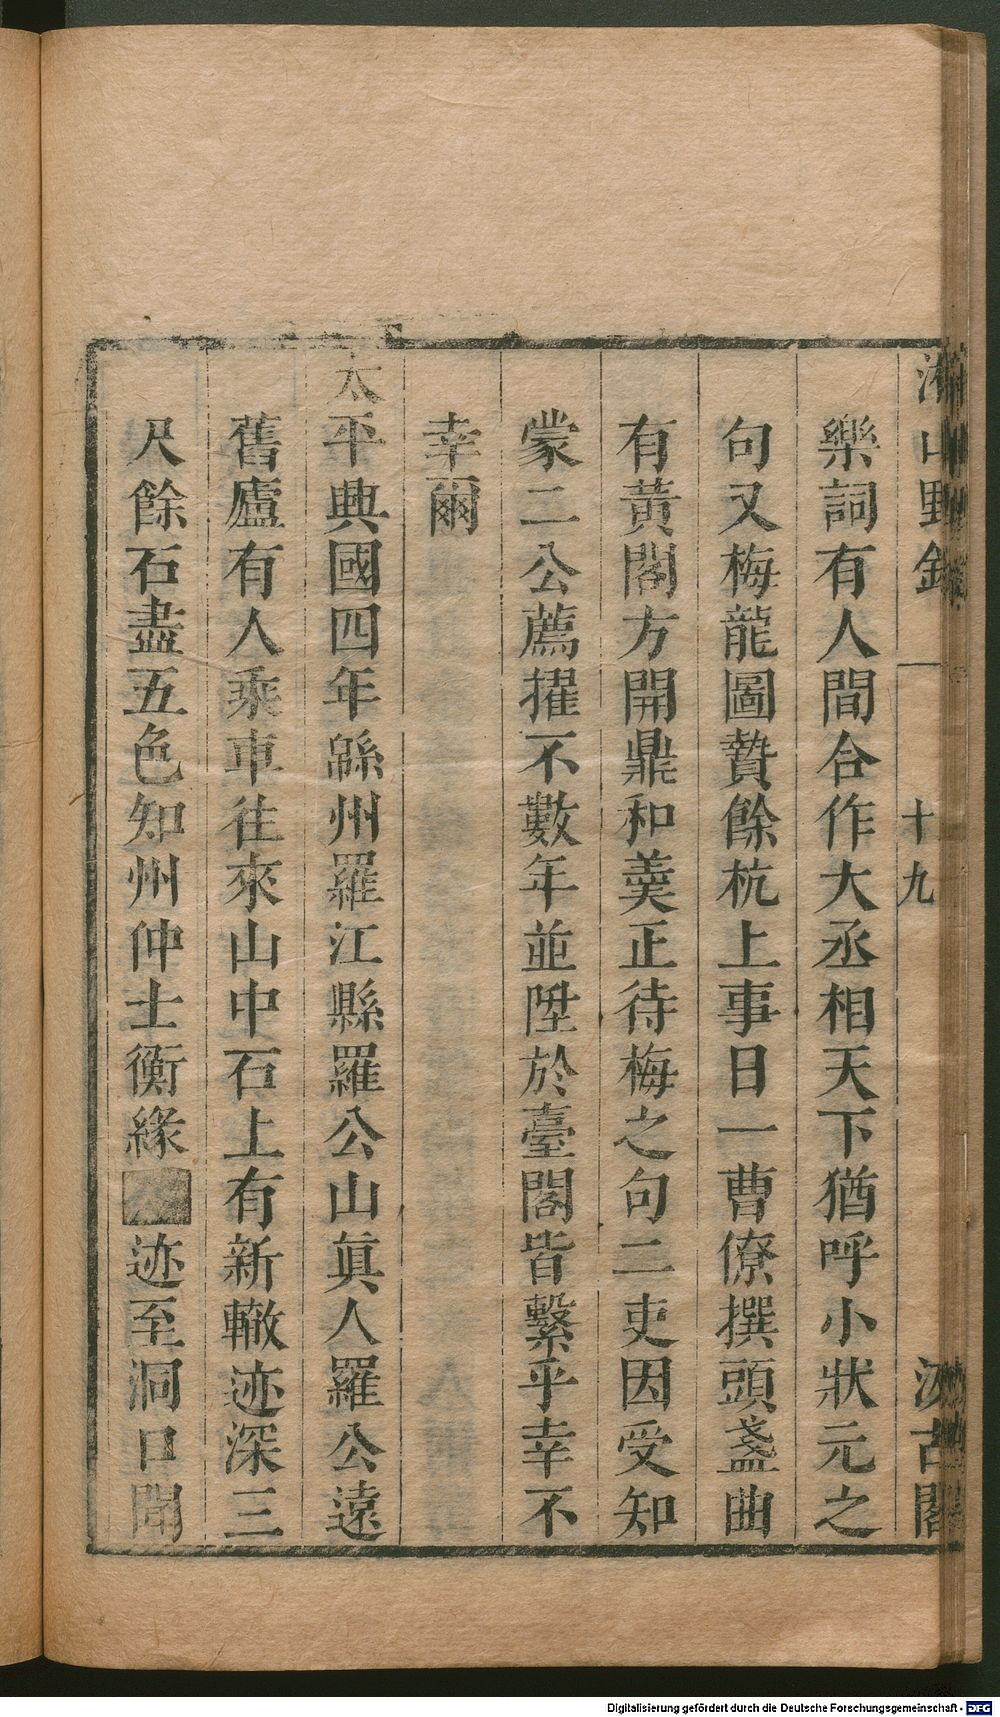 湘山野錄 一 十九 汲古閣
樂詞有人間合作大丞相天下猶呼小狀元之
句又梅龍圖贄餘杭上事日一曹僚撰頭盞曲
有黃閣方開鼎和羹正待梅之句二吏因受知
蒙二公薦擢不數年並陞於臺閣皆繫乎幸不
幸爾
太平興國四年緜州羅江縣羅公山眞人羅公遠
舊廬有人乘車往來山中石上有新轍迹深三
尺餘石盡五色知州仲士衡緣迹至洞口聞
Digitalisierung gefördert durch die Deutsche Forschungsgemeinschaft - DFG